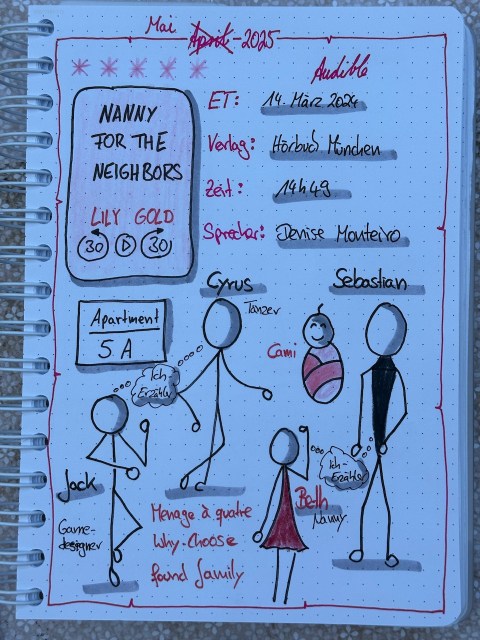 Mai
April-2025
Audible
NANNY
FOR THE
NEIGHBORS
LILY GOLD
30 30
ET: 14. März 2024
Verlag: Hörbuch München
Zeit: 14h49
Sprecher: Denise Monteiro
Cyrus
Sebastian
Tänzer
Apartment
5A
Cami
Ich
Erzähler
Ich-
Erzähler
Jack
Game-
designer
Beth
Nanny
Menage à quatre
Why-Choose
found family